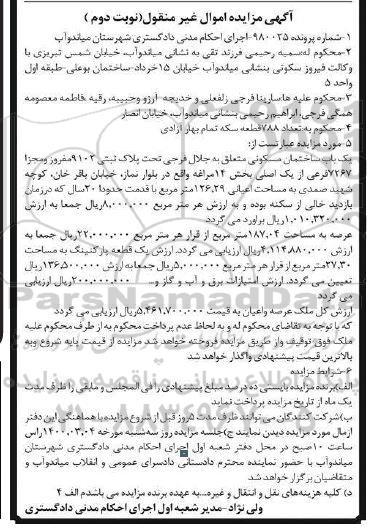 آگهی مزایده اموال غیر منقول(نوبت دوم )
۱-شماره پرونده ۹۸۰۰۲۵-اجرای احکام مدنی دادگستری شهرستان میاندوآب
۲-محکوم له:سمیه رحیمی فرزند تقی به نشانی میاندوآب، خیابان شمس تبریزی با
وکالت فیروز سکوتی بنشانی میاندوآب خیابان ۱۵خرداد-ساختمان بوعلی-طبقه اول
واحد ۵
۳-محکوم علیه ها:سارینا فرجی زلفعلی و خدیجه آرزو وحبیبه، رقیه ،فاطمه معصومه
همگی فرجی، ابراهیم رحیمی بنشانی میاندوآب، خیابان انصار
۴-محکوم به:تعداد ۷۸۸قطعه سکه تمام بهار آزادی
۵-مورد مزایده عبارتست از:
یک باب ساختمان مسکونی متعلق به جلال فرجی تحت پلاک ثبتی ۹۱۰۲مفروز ومجزا
۷۲۶۷فرعی از یک اصلی بخش ۱۴مراغه واقع در بلوار نماز، خیابان باقر خان، کوچه
شهید صمدی به مساحت اعیانی ۱۲۶.۲۹متر مربع با قدمت حدودا ۲۰سال که درزمان
بازدید خالی از سکنه بوده و به ارزش هر متر مربع ۸.۰۰۰.۰۰۰ریال جمعا به ارزش
۱.۰۱۰.۳۲۰.۰۰۰ریال برآورد می گردد
عرصه به مساحت ۱۸۷.۰۴متر مربع از قرار هر متر مربع ۲۲.۰۰۰.۰۰۰ریال جمعا به
ارزش ۴.۱۱۴.۸۸۰.۰۰۰ریال ارزیابی می گردد. ارزش یک قطعه پارکینگ به مساحت
۲۷.۳۰متر مربع از قرار هر متر مربع ۵.۰۰۰.۰۰۰ریال جمعا به ارزش ۱۳۶.۵۰۰.۰۰۰ریال
تعیین می گردد. ارزش امتیازات برق و آب و گاز و... ۲۰۰.۰۰۰.۰۰۰ریال ارزیابی
می گردد
ارزش کل ملک عرصه واعیان به قیمت ۵.۴۶۱.۷۰۰.۰۰۰ریال ارزیابی می گردد
که با توجه به تقاضای محکوم له و به لحاظ عدم پرداخت محکوم به از طرف محکوم علیه
ملک فوق توقیف واز طریق مزایده فروخته خواهد شد مزایده از قیمت پایه شروع وبه
بالاترین قیمت پیشنهادی واگذار خواهد شد
۶-شرایط مزایده
الف)برنده مزایده بایستی ده درصد مبلغ پیشنهادی را فی المجلس و مابقی را ظرف مدت
یک ماه از تاریخ مزایده پرداخت نماید
ب)شرکت کنندگان می توانند ظرف مدت ۵روز قبل از شروع مزایده با هماهنگی این دفتر
ازمال مورد مزایده دیدن نمایند ج)جلسه مزایده روز سه شنبه مورخه ۱۴۰۰.۰۳.۰۴راس
ساعت ۱۰صبح در محل دفتر شعبه اول اجرای احکام مدنی دادگستری شهرستان
میاندوآب با حضور نماینده محترم دادستانی دادسرای عمومی و انقلاب میاندوآب و
متقاضیان برگزار خواهد شد
د) کلیه هزینه‌های نقل و انتقال و غیره...به عهده برنده مزایده می باشدم الف ۴
ولی نژاد -مدیر شعبه اول اجرای احکام مدنی دادگستری